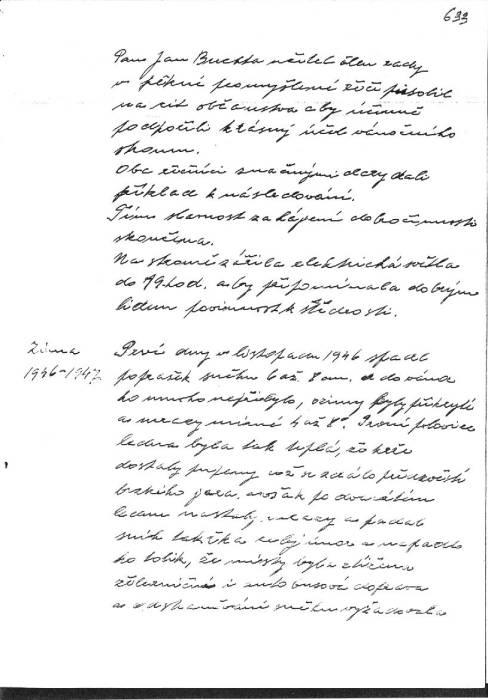 633
Pan Jan Buchta učitel člen rady
v pěkné promyšlené řeči působil
na cit občanstva aby účinně
podpořili krásný účel vánočního
stromu.
Oba řečníci značnými dary dali
příklad k následování.
Tím slavnost zahájení dobročinnosti
skončena.
Na stromě zářila elektrická světla
do 19 hod. aby připomínala dobrým
lidem povinnost k štědrosti.
Zima
1946-1947
Prvé dny v listopadu 1946 spadl
poprašek sněhu 6 až 8 cm, a do vánoc
ho mnoho nepřibylo, ozimy byly přikryté
a mrazy mírné 4 až 8°. První polovice
ledna byla tak teplá, že keře
dostaly pupeny což se zdálo předzvěstí
brzkého jara, avšak po dvacátém
lednu nastaly mrazy a padal
sníh takřka celý únor a napadlo
ho tolik, že místy byla ztížena
železniční i autobusová doprava
a odstraňování sněhu vyžadovalo